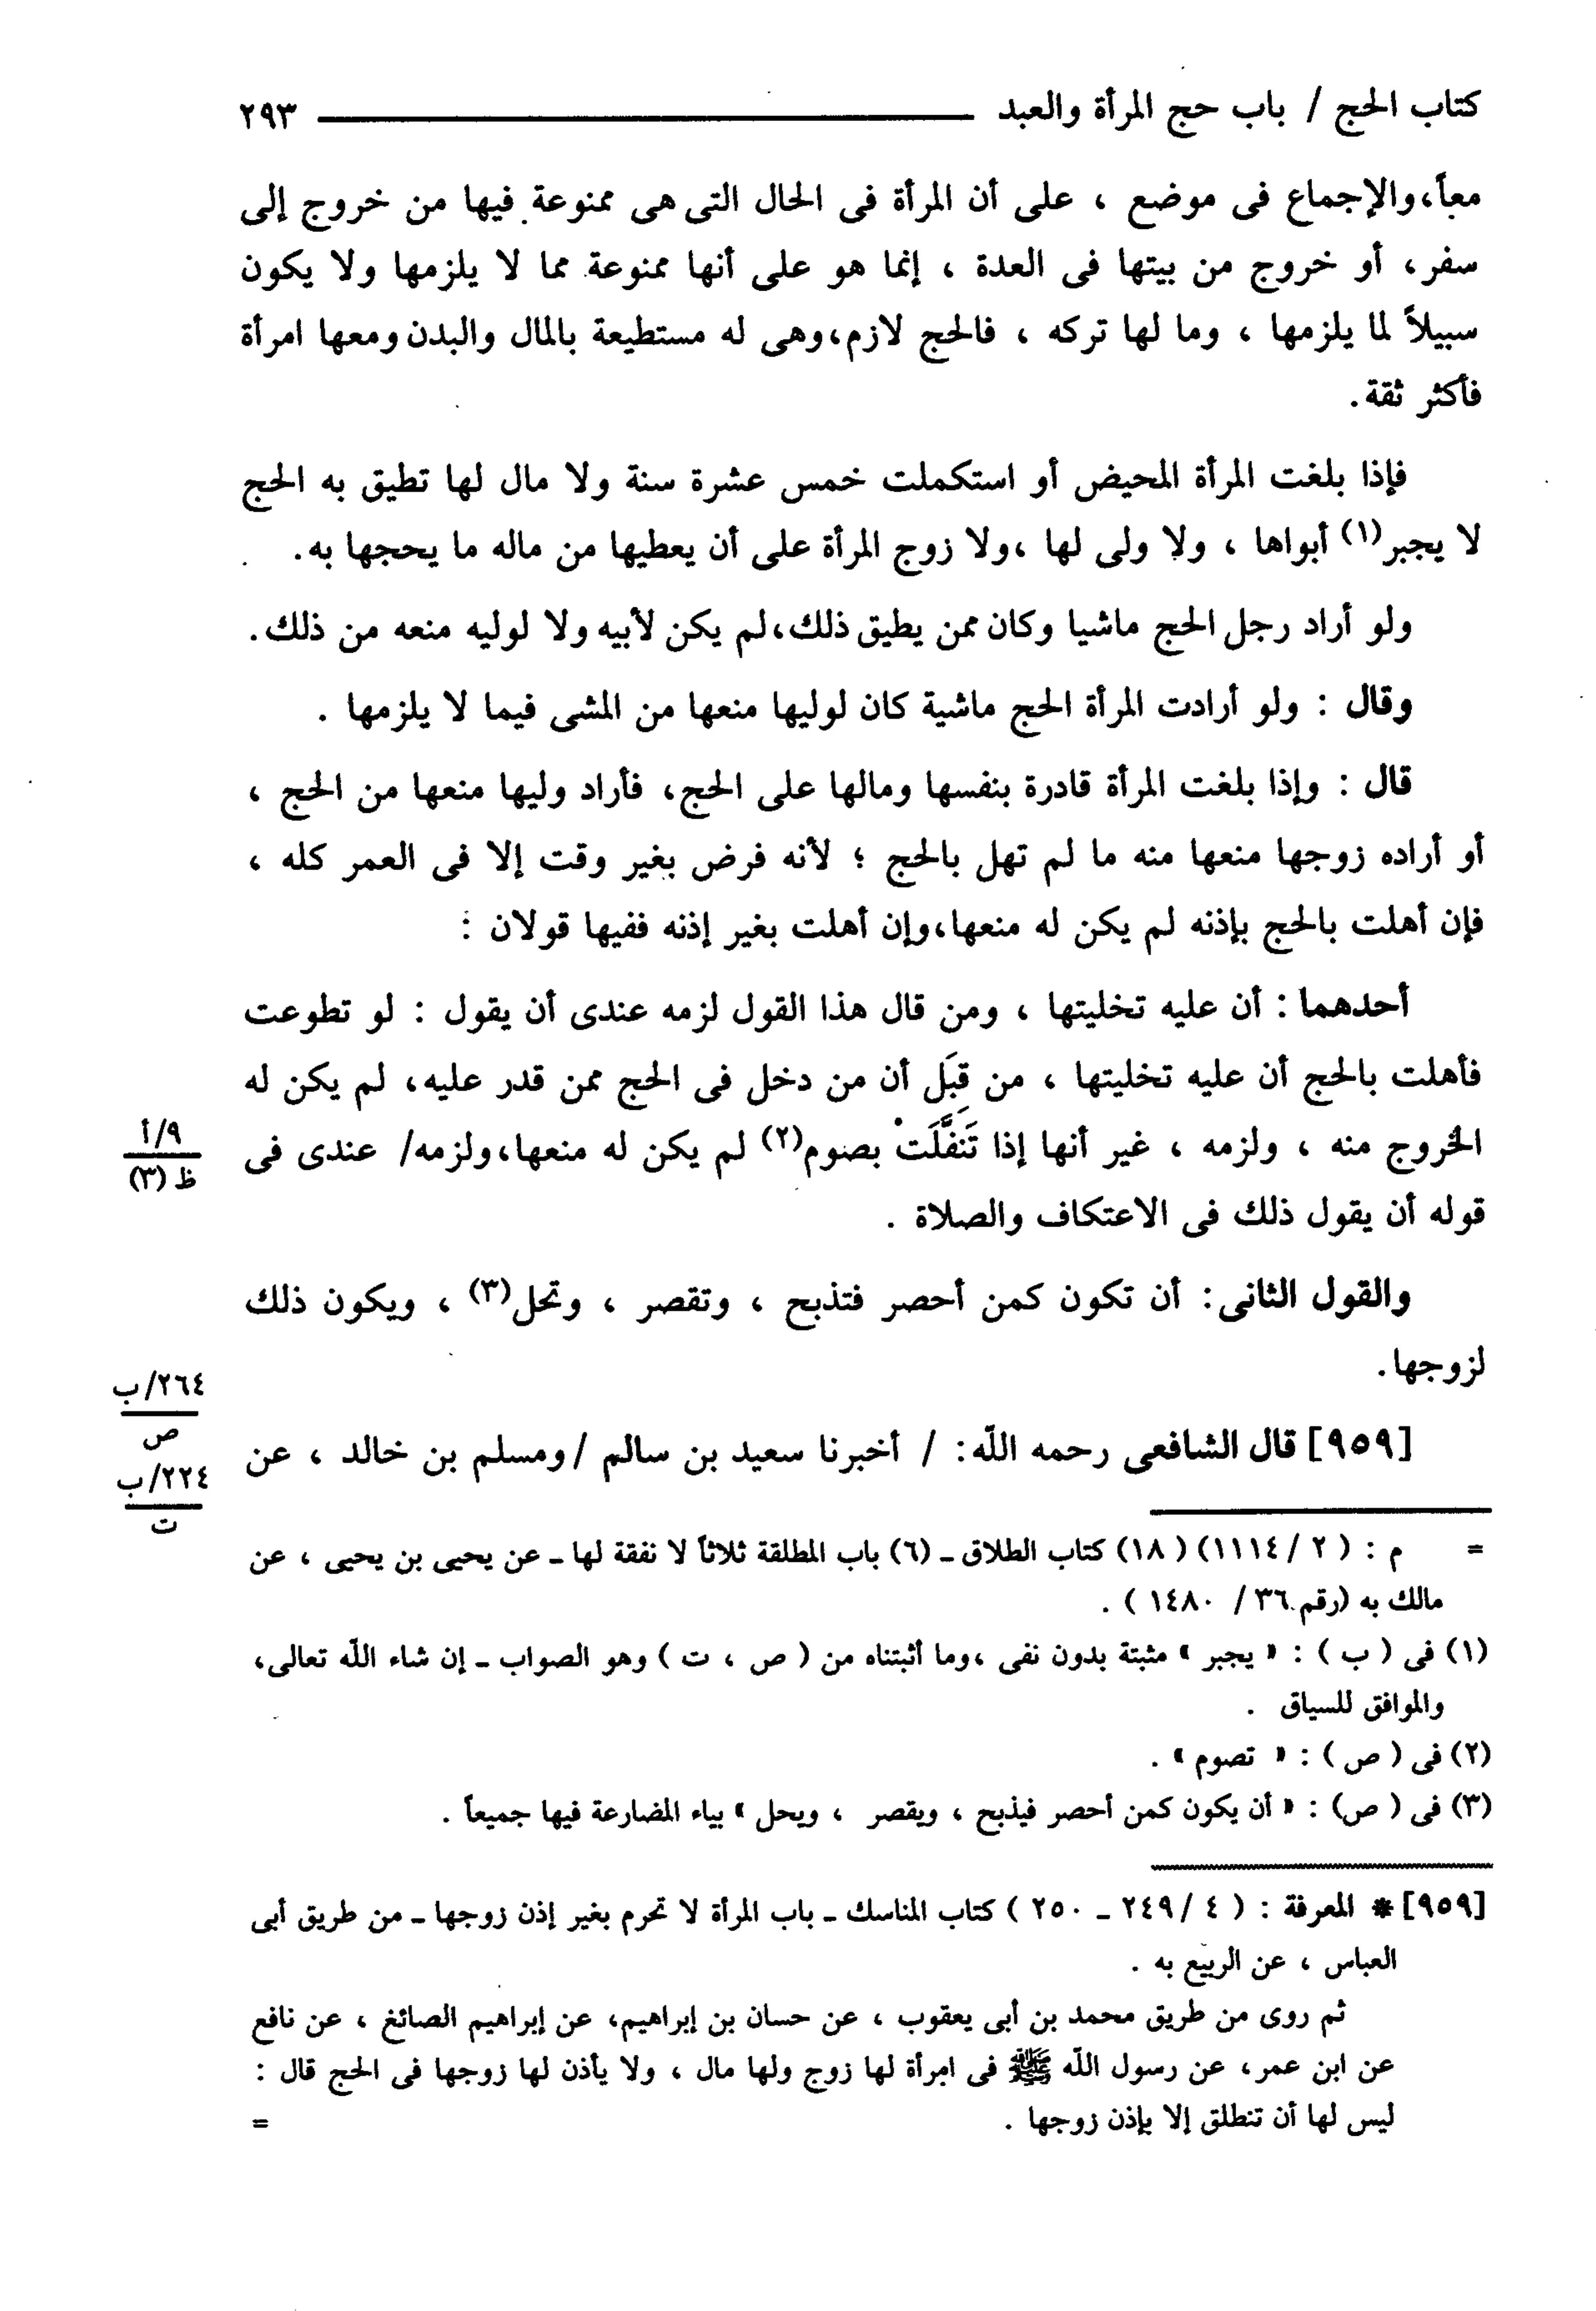 كتاب الحج / باب حج المرأة والعبد ٢٩٣
معاً، والإجماع فى موضع ، على أن المرأة فى الحال التى هى ممنوعة فيها من خروج إلى
سفر، أو خروج من بيتها فى العدة ، إنما هو على أنها ممنوعة مما لا يلزمها ولا يكون
سبيلاً لما يلزمها ، وما لها تركه ، فالحج لازم، وهى له مستطيعة بالمال والبدن ومعها امرأة
فأكثر ثقة.
فإذا بلغت المرأة المحيض أو استكملت خمس عشرة سنة ولا مال لها تطيق به الحج
لا يجبر(١) أبواها ، ولا ولى لها ،ولا زوج المرأة على أن يعطيها من ماله ما يحجها به.
ولو أراد رجل الحج ماشيا وكان ممن يطيق ذلك، لم يكن لأبيه ولا لوليه منعه من ذلك.
وقال : ولو أرادت المرأة الحج ماشية كان لوليها منعها من المشى فيما لا يلزمها .
قال : وإذا بلغت المرأة قادرة بنفسها ومالها على الحج، فأراد وليها منعها من الحج ،
أو أراده زوجها منعها منه ما لم تهل بالحج ؛ لأنه فرض بغير وقت إلا فى العمر كله ،
فإن أهلت بالحج بإذنه لم يكن له منعها، وإن أهلت بغير إذنه ففيها قولان :
أحدهما : أن عليه تخليتها ، ومن قال هذا القول لزمه عندى أن يقول : لو تطوعت
فأهلت بالحج أن عليه تخليتها ، من قِبَل أن من دخل فى الحج ممن قدر عليه، لم يكن له
الخروج منه ، ولزمه ، غير أنها إذا تَنَفَّلَتْ بصوم(٢) لم يكن له منعها، ولزمه/ عندى فى
٩/أ
ظ (٣)
قوله أن يقول ذلك فى الاعتكاف والصلاة .
والقول الثانى: أن تكون كمن أحصر فتذبح ، وتقصر ، وتحل(٣) ، ويكون ذلك
لزوجها.
٢٦٤/ب
ص
[٩٥٩] قال الشافعى رحمه الله: / أخبرنا سعيد بن سالم /ومسلم بن خالد ، عن
٢٢٤/ب
ت
= م : ( ٢ /١١١٤) (١٨ ) كتاب الطلاق ـ (٦) باب المطلقة ثلاثاً لا نفقة لها ـ عن يحيى بن يحيى ، عن
مالك به (رقم ٣٦ / ١٤٨٠ ) .
(١) فى ( ب ) : « يجبر » مثبتة بدون نفى ،وما أثبتناه من ( ص ، ت ) وهو الصواب ـ إن شاء الله تعالى،
والموافق للسياق .
(٢) فى ( ص ) : « تصوم » .
(٣) فى ( ص) : « أن يكون كمن أحصر فيذبح ، ويقصر ، ويحل » بياء المضارعة فيها جميعاً .
[٩٥٩] * المعرفة : ( ٤ /٢٤٩ ـ ٢٥٠ ) كتاب المناسك ـ باب المرأة لا تحرم بغير إذن زوجها ـ من طريق أبى
العباس ، عن الربيع به .
ثم روى من طريق محمد بن أبى يعقوب ، عن حسان بن إبراهيم، عن إبراهيم الصائغ ، عن نافع
عن ابن عمر، عن رسول الله ﷺ فى امرأة لها زوج ولها مال ، ولا يأذن لها زوجها فى الحج قال :
ليس لها أن تنطلق إلا بإذن زوجها . =